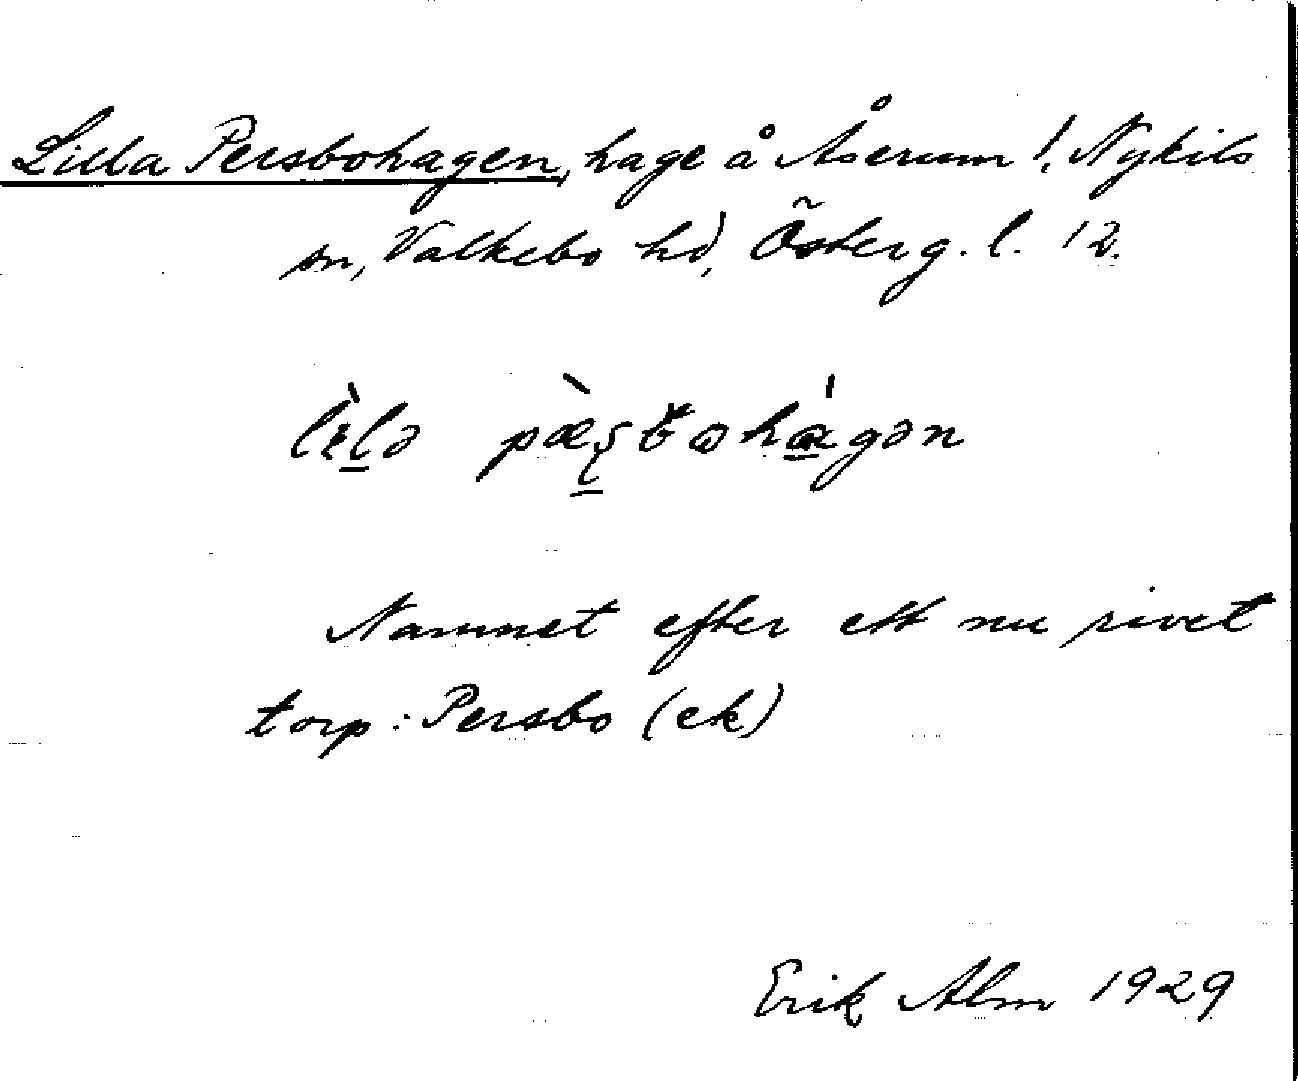 Lilla Persbohagen, hage å Åserum !, Nykils
sn, Valkebo hd, Österg. l. 12.
Namnet efter ett nu rivet
torp: Persbo (ek)
Erik Alm 1929